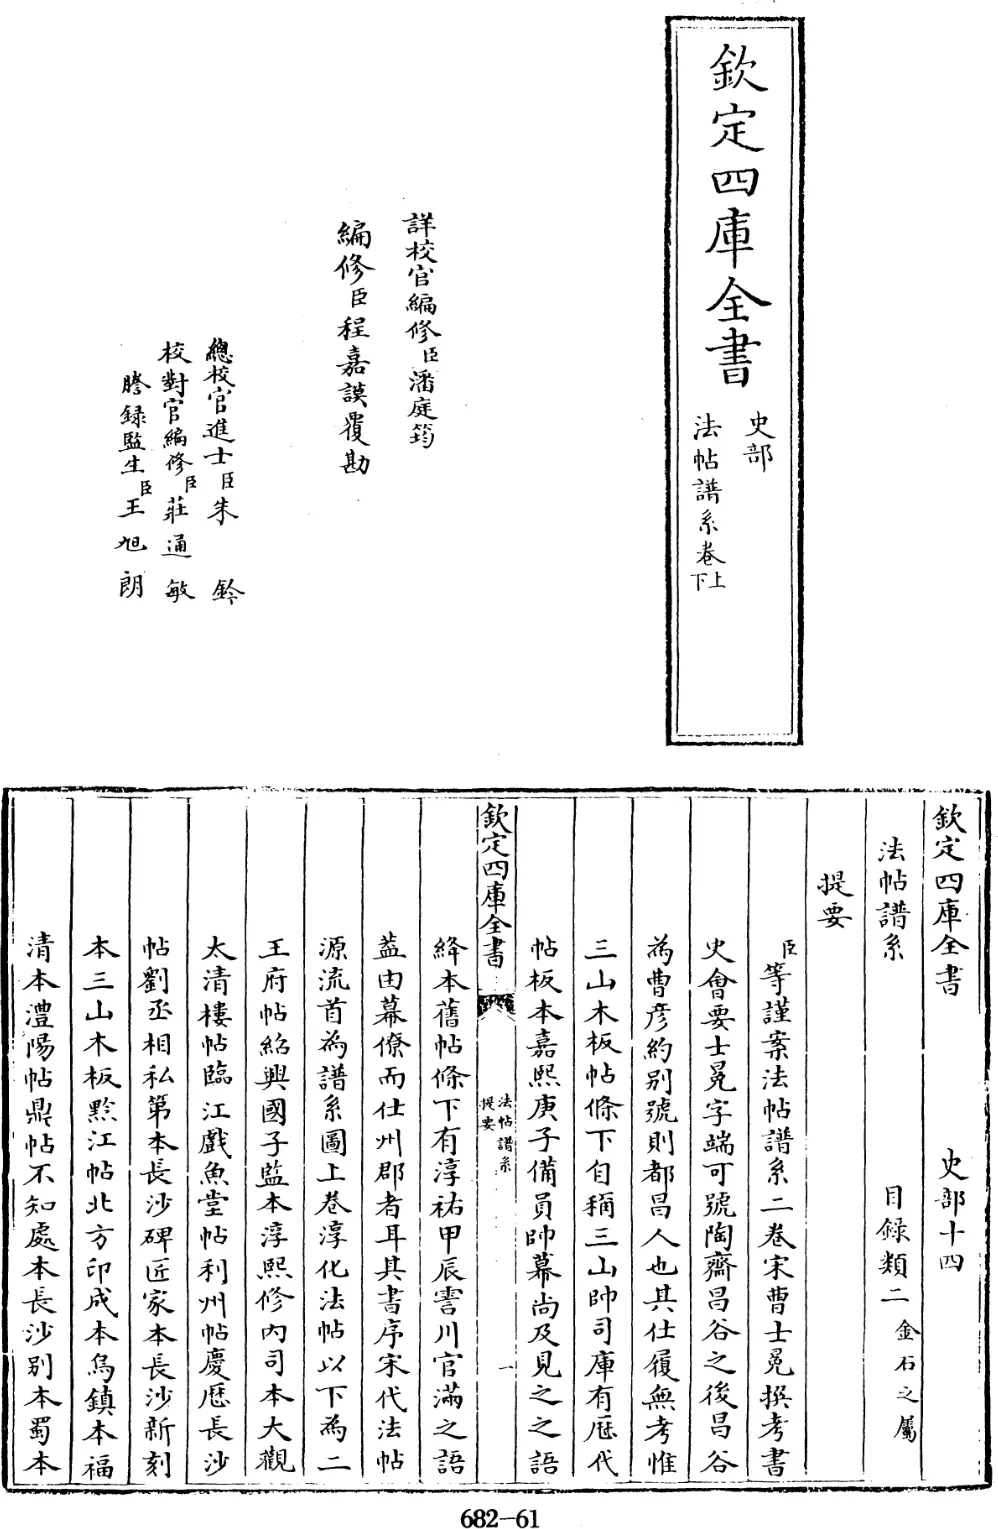 欽定四庫全書
史部
法帖譜系卷上下
詳校官編修臣潘庭筠
編修臣程嘉謨覆勘
總校官進士臣朱鈐
校對官編修臣莊通敏
謄錄監生臣王旭朗
欽定四庫全書 史部十四
法帖譜系 目録類二金石之屬
提要
臣等謹案法帖譜系二卷宋曹士冕撰考書
史會要士冕字端可號陶齋昌谷之後昌谷
為曹彦約别號則都昌人也其仕履無考惟
三山木板帖條下自稱三山帥司庫有厯代
帖板本嘉熙庚子備員帥幕尚及見之之語
欽定四庫全書
法帖譜系
提要
一
絳本舊帖條下有淳祐甲辰霅川官滿之語
蓋由幕僚而仕州郡者耳其書序宋代法帖
源流首為譜系圖上卷淳化法帖以下為二
王府帖紹興國子監本淳熙修内司本大觀
太清樓帖臨江戲魚堂帖利州帖慶厯長沙
帖劉丞相私第本長沙碑匠家本長沙新刻
本三山木板黔江帖北方印成本烏鎮本福
清本澧陽帖鼎帖不知處本長沙别本蜀本
682-61